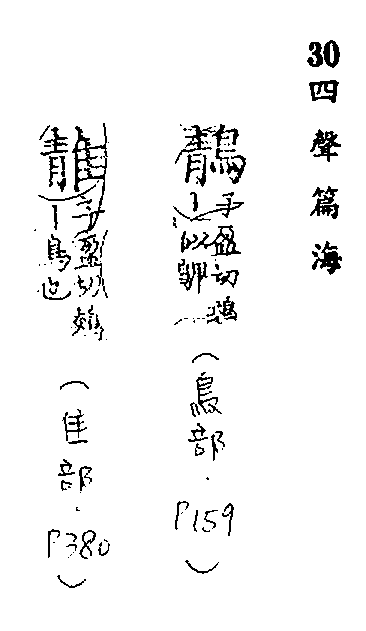 30四聲篇海
鶄
子盈切鵁
｜似鴨
（鳥部．P159）
子盈切鵁
｜鳥也
（隹部．P380）